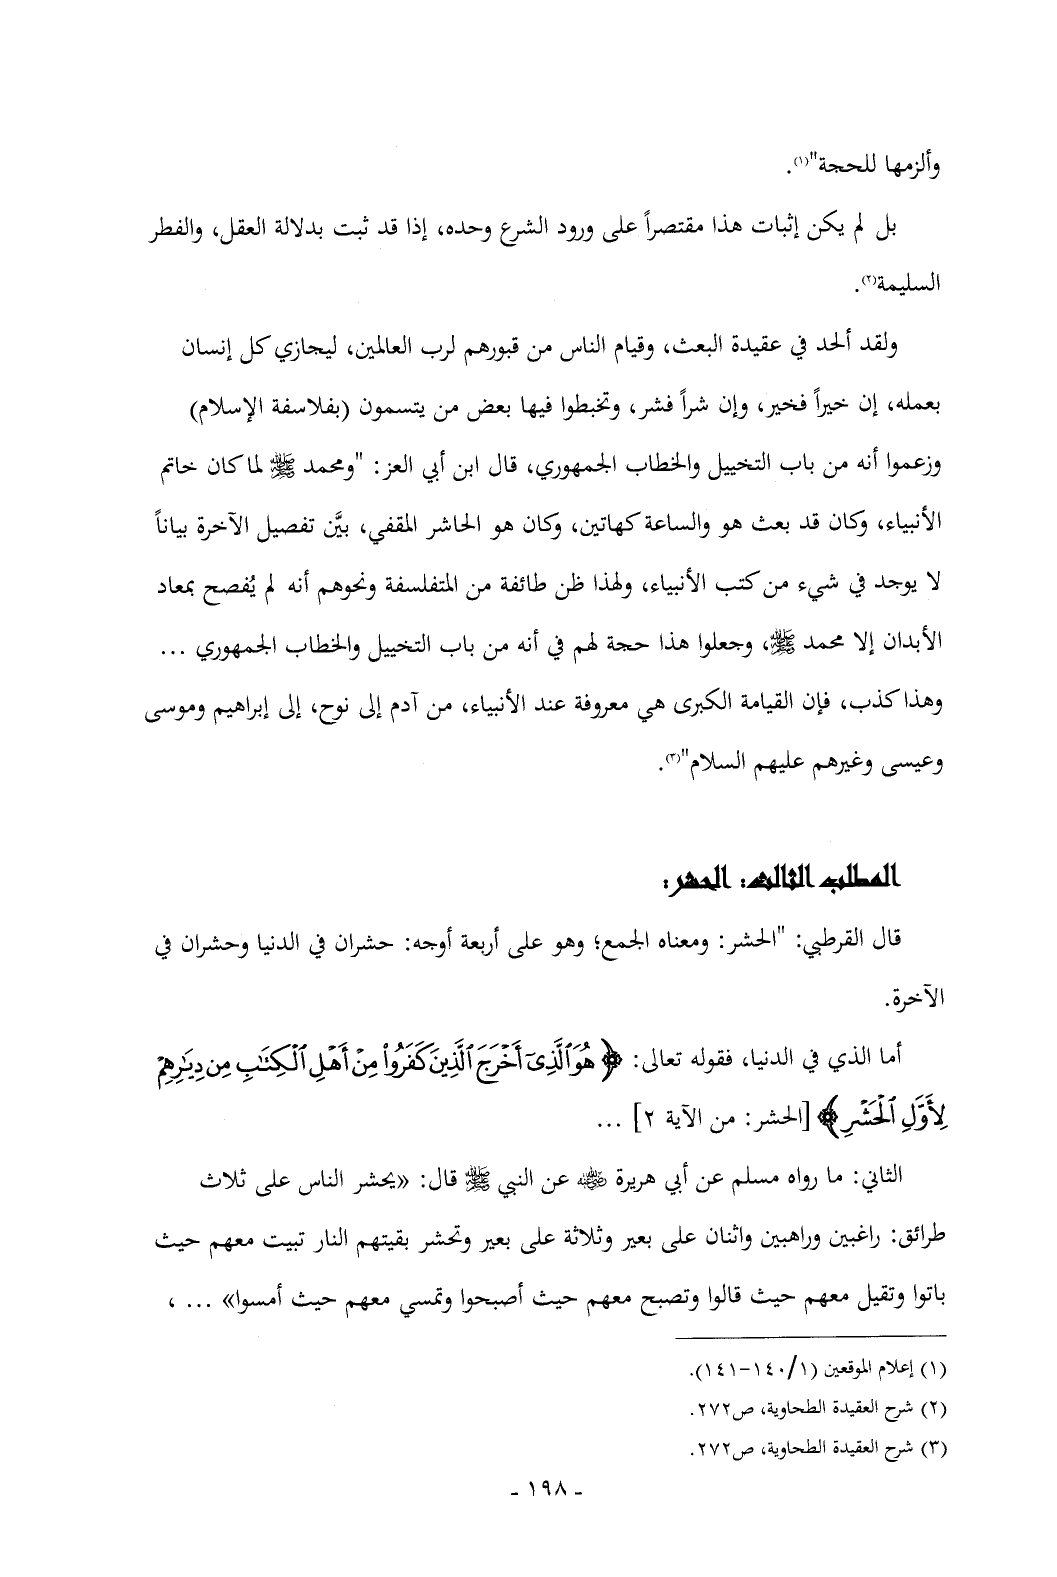 وألزمها للحجة"(١).
بل لم يكن إثبات هذا مقتصراً على ورود الشرع وحده، إذا قد ثبت بدلالة العقل، والفطر
السليمة(٢).
ولقد ألحد في عقيدة البعث، وقيام الناس من قبورهم لرب العالمين، ليجازي كل إنسان
بعمله، إن خيراً فخير، وإن شراً فشر، وتخبطوا فيها بعض من يتسمون (بفلاسفة الإسلام)
وزعموا أنه من باب التخييل والخطاب الجمهوري، قال ابن أبي العز: "ومحمد ﷺ لما كان خاتم
الأنبياء، وكان قد بعث هو والساعة كهاتين، وكان هو الحاشر المقفي، بيَّن تفصيل الآخرة بياناً
لا يوجد في شيء من كتب الأنبياء، ولهذا ظن طائفة من المتفلسفة ونحوهم أنه لم يُفصح بمعاد
الأبدان إلا محمد ﷺ، وجعلوا هذا حجة لهم في أنه من باب التخييل والخطاب الجمهوري ...
وهذا كذب، فإن القيامة الكبرى هي معروفة عند الأنبياء، من آدم إلى نوح، إلى إبراهيم وموسى
وعيسى وغيرهم عليهم السلام"(٣).
المطلب الثالث: الحشر:
قال القرطبي: "الحشر: ومعناه الجمع؛ وهو على أربعة أوجه: حشران في الدنيا وحشران في
الآخرة.
أما الذي في الدنيا، فقوله تعالى: ﴿هُوَ ٱلَّذِىٓ أَخْرَجَ ٱلَّذِينَ كَفَرُوا۟ مِنْ أَهْلِ ٱلْكِتَٰبِ مِن دِيَٰرِهِمْ
لِأَوَّلِ ٱلْحَشْرِ﴾ [الحشر: من الآية ٢] ...
الثاني: ما رواه مسلم عن أبي هريرة ﵁ عن النبي ﷺ قال: «يحشر الناس على ثلاث
طرائق: راغبين وراهبين واثنان على بعير وثلاثة على بعير وتحشر بقيتهم النار تبيت معهم حيث
باتوا وتقيل معهم حيث قالوا وتصبح معهم حيث أصبحوا وتمسي معهم حيث أمسوا» ... ،
(١) إعلام الموقعين (١/١٤٠-١٤١).
(٢) شرح العقيدة الطحاوية، ص٢٧٢.
(٣) شرح العقيدة الطحاوية، ص٢٧٢.
- ١٩٨ -